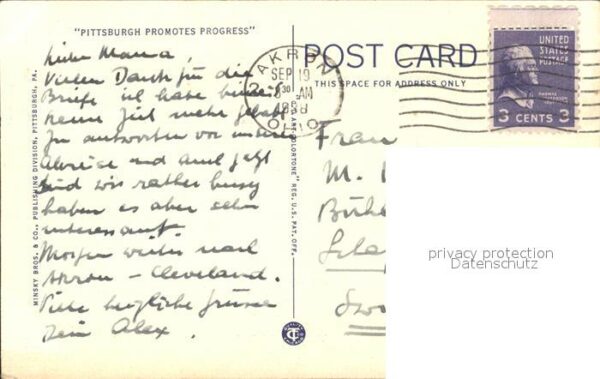 "PITTSBURGH PROMOTES PROGRESS"
Liebe Mama,
Vielen Dank für die
Briefe ich habe
keine Zeit mehr gehabt
zu antworten vor unserer
Abreise und auch jetzt
sind wir rather busy
haben es aber sehr
interessant.
Morgen weiter nach
Akron - Cleveland.
Viele herzliche Grüsse
Dein Alex.
MINSKY BROS. & CO., PUBLISHING DIVISION, PITTSBURGH, PA.
REG. U.S. PAT. OFF.
POST CARD
THIS SPACE FOR ADDRESS ONLY
AKRON
SEP 19
AM
OHIO
UNITED
STATES
POSTAGE
3 CENTS 3
Frau
M.
privacy protection
Datenschutz